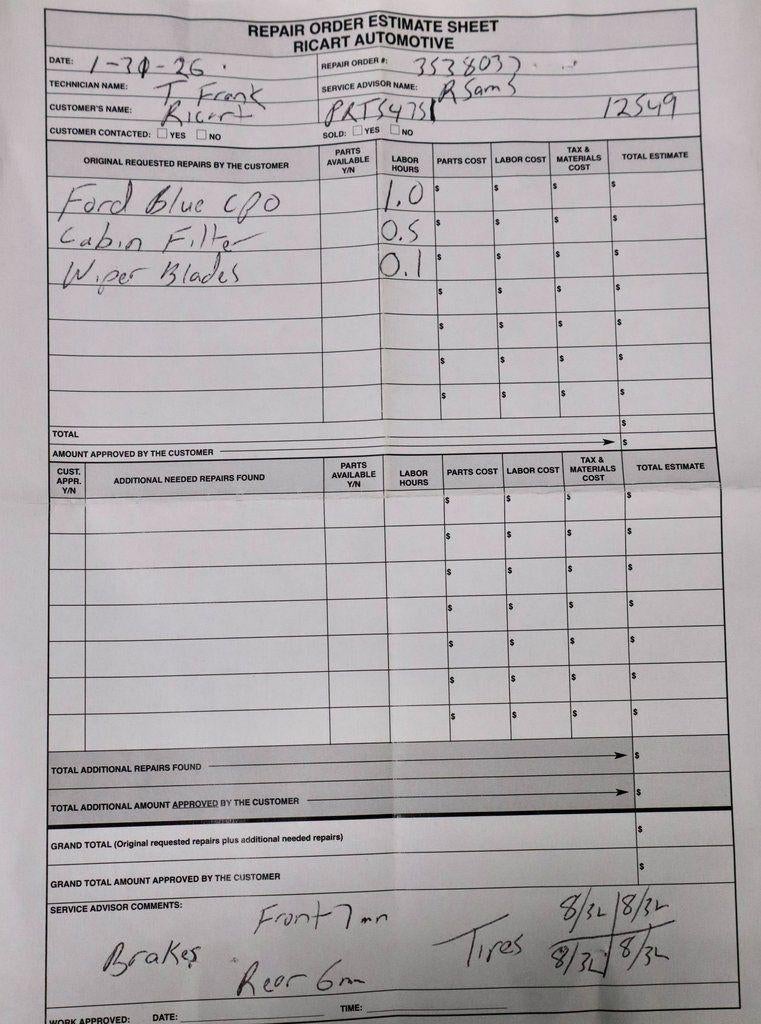 REPAIR ORDER ESTIMATE SHEET
RICART AUTOMOTIVE
DATE: 1-30-26 REPAIR ORDER #: 3538037
TECHNICIAN NAME: T Frank SERVICE ADVISOR NAME: R Sams
CUSTOMER'S NAME: Ricart PRTS4751 12549
CUSTOMER CONTACTED: ☐ YES ☐ NO SOLD: ☐ YES ☐ NO
ORIGINAL REQUESTED REPAIRS BY THE CUSTOMER PARTS AVAILABLE Y/N LABOR HOURS PARTS COST LABOR COST TAX & MATERIALS COST TOTAL ESTIMATE
Ford Blue CPO 1.0 $ $ $ $
Cabin Filter 0.5 $ $ $ $
Wiper Blades 0.1 $ $ $ $
$ $ $ $
$ $ $ $
$ $ $ $
$ $ $ $
TOTAL $
AMOUNT APPROVED BY THE CUSTOMER $
CUST. APPR. Y/N ADDITIONAL NEEDED REPAIRS FOUND PARTS AVAILABLE Y/N LABOR HOURS PARTS COST LABOR COST TAX & MATERIALS COST TOTAL ESTIMATE
$ $ $ $
$ $ $ $
$ $ $ $
$ $ $ $
$ $ $ $
$ $ $ $
$ $ $ $
TOTAL ADDITIONAL REPAIRS FOUND $
TOTAL ADDITIONAL AMOUNT APPROVED BY THE CUSTOMER $
GRAND TOTAL (Original requested repairs plus additional needed repairs) $
GRAND TOTAL AMOUNT APPROVED BY THE CUSTOMER $
SERVICE ADVISOR COMMENTS:
Front 7mm 8/32 8/32
Brakes Tires
Rear 6mm 8/32 8/32
WORK APPROVED: DATE: TIME: